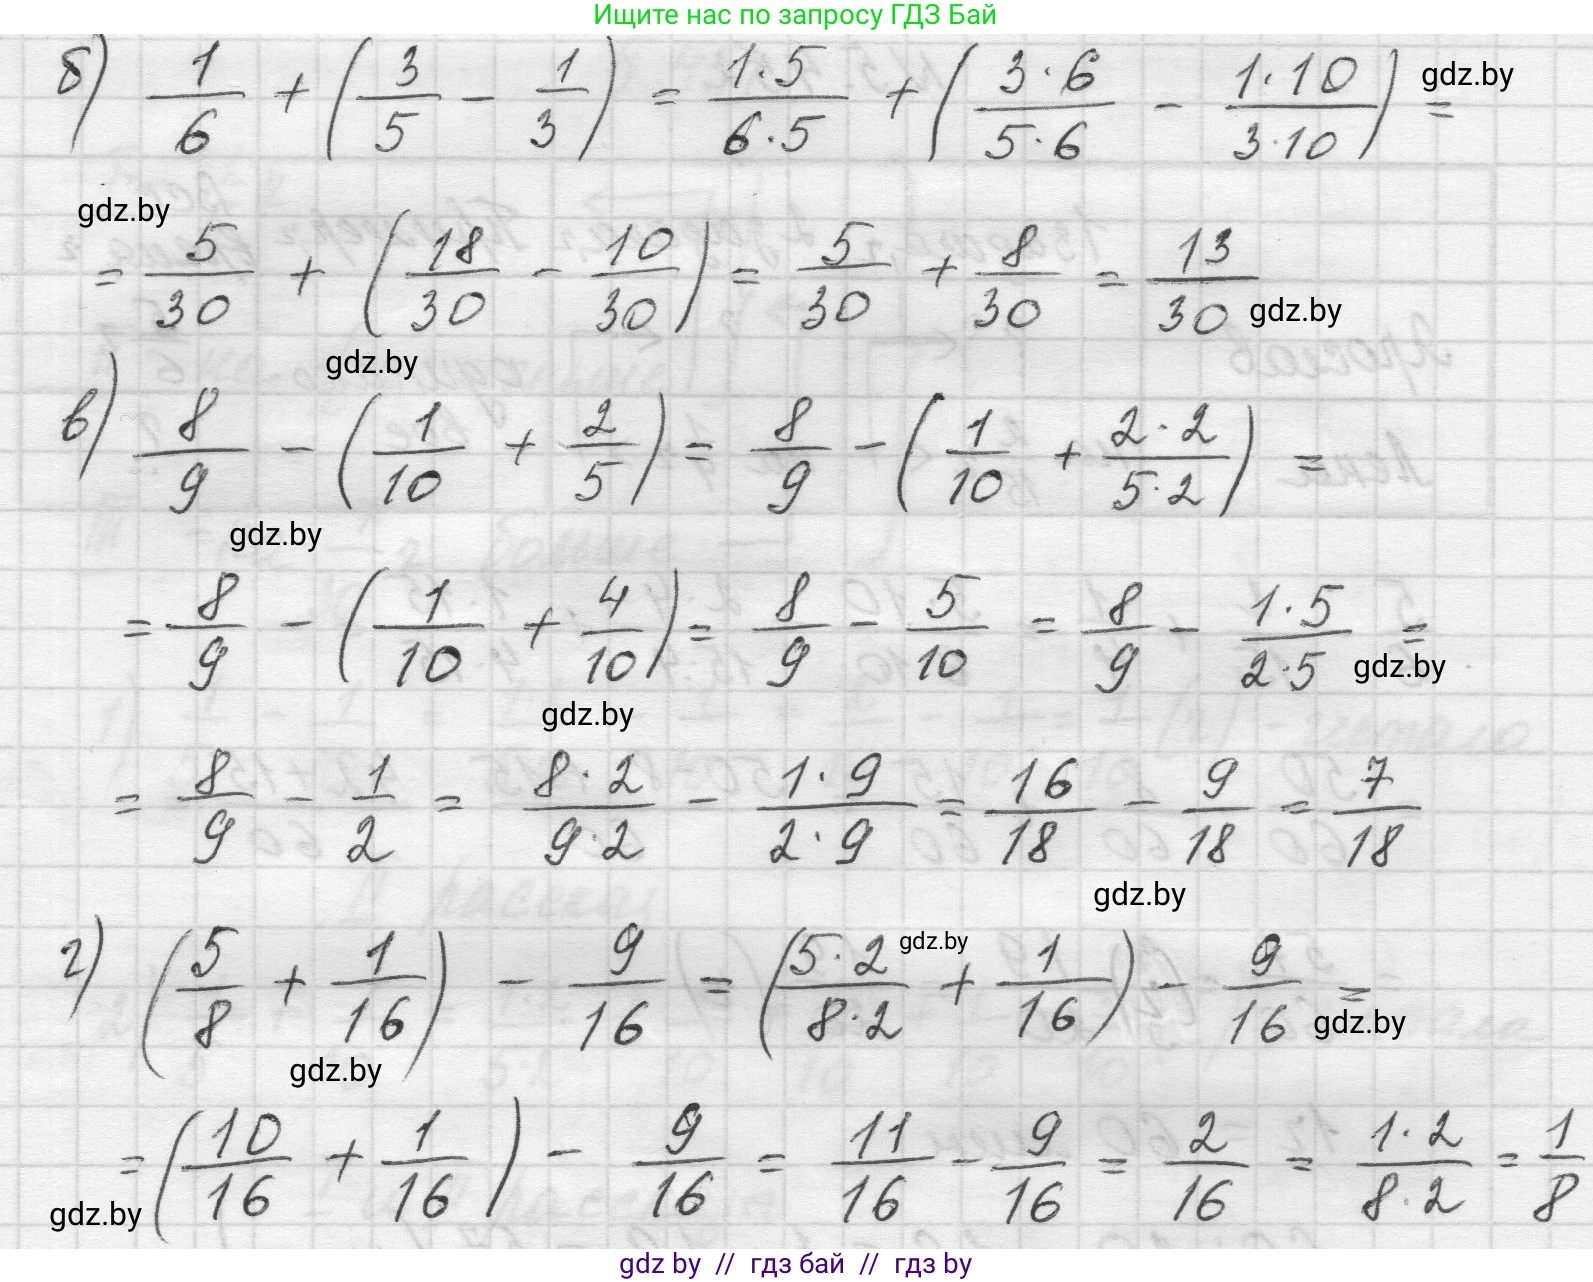 Ищите нас по запросу ГДЗ Бай
б) 1/6 + (3/5 − 1/3) = 1·5/6·5 + (3·6/5·6 − 1·10/3·10) = gdz.by
gdz.by
= 5/30 + (18/30 − 10/30) = 5/30 + 8/30 = 13/30 gdz.by
gdz.by
в) 8/9 − (1/10 + 2/5) = 8/9 − (1/10 + 2·2/5·2) =
gdz.by
= 8/9 − (1/10 + 4/10) = 8/9 − 5/10 = 8/9 − 1·5/2·5 = gdz.by
gdz.by
= 8/9 − 1/2 = 8·2/9·2 − 1·9/2·9 = 16/18 − 9/18 = 7/18
gdz.by
г) (5/8 + 1/16) − 9/16 = (5·2/8·2 + 1/16) − 9/16 = gdz.by
gdz.by
gdz.by
= (10/16 + 1/16) − 9/16 = 11/16 − 9/16 = 2/16 = 1·2/8·2 = 1/8
gdz.by
gdz by // гдз бай // гдз by